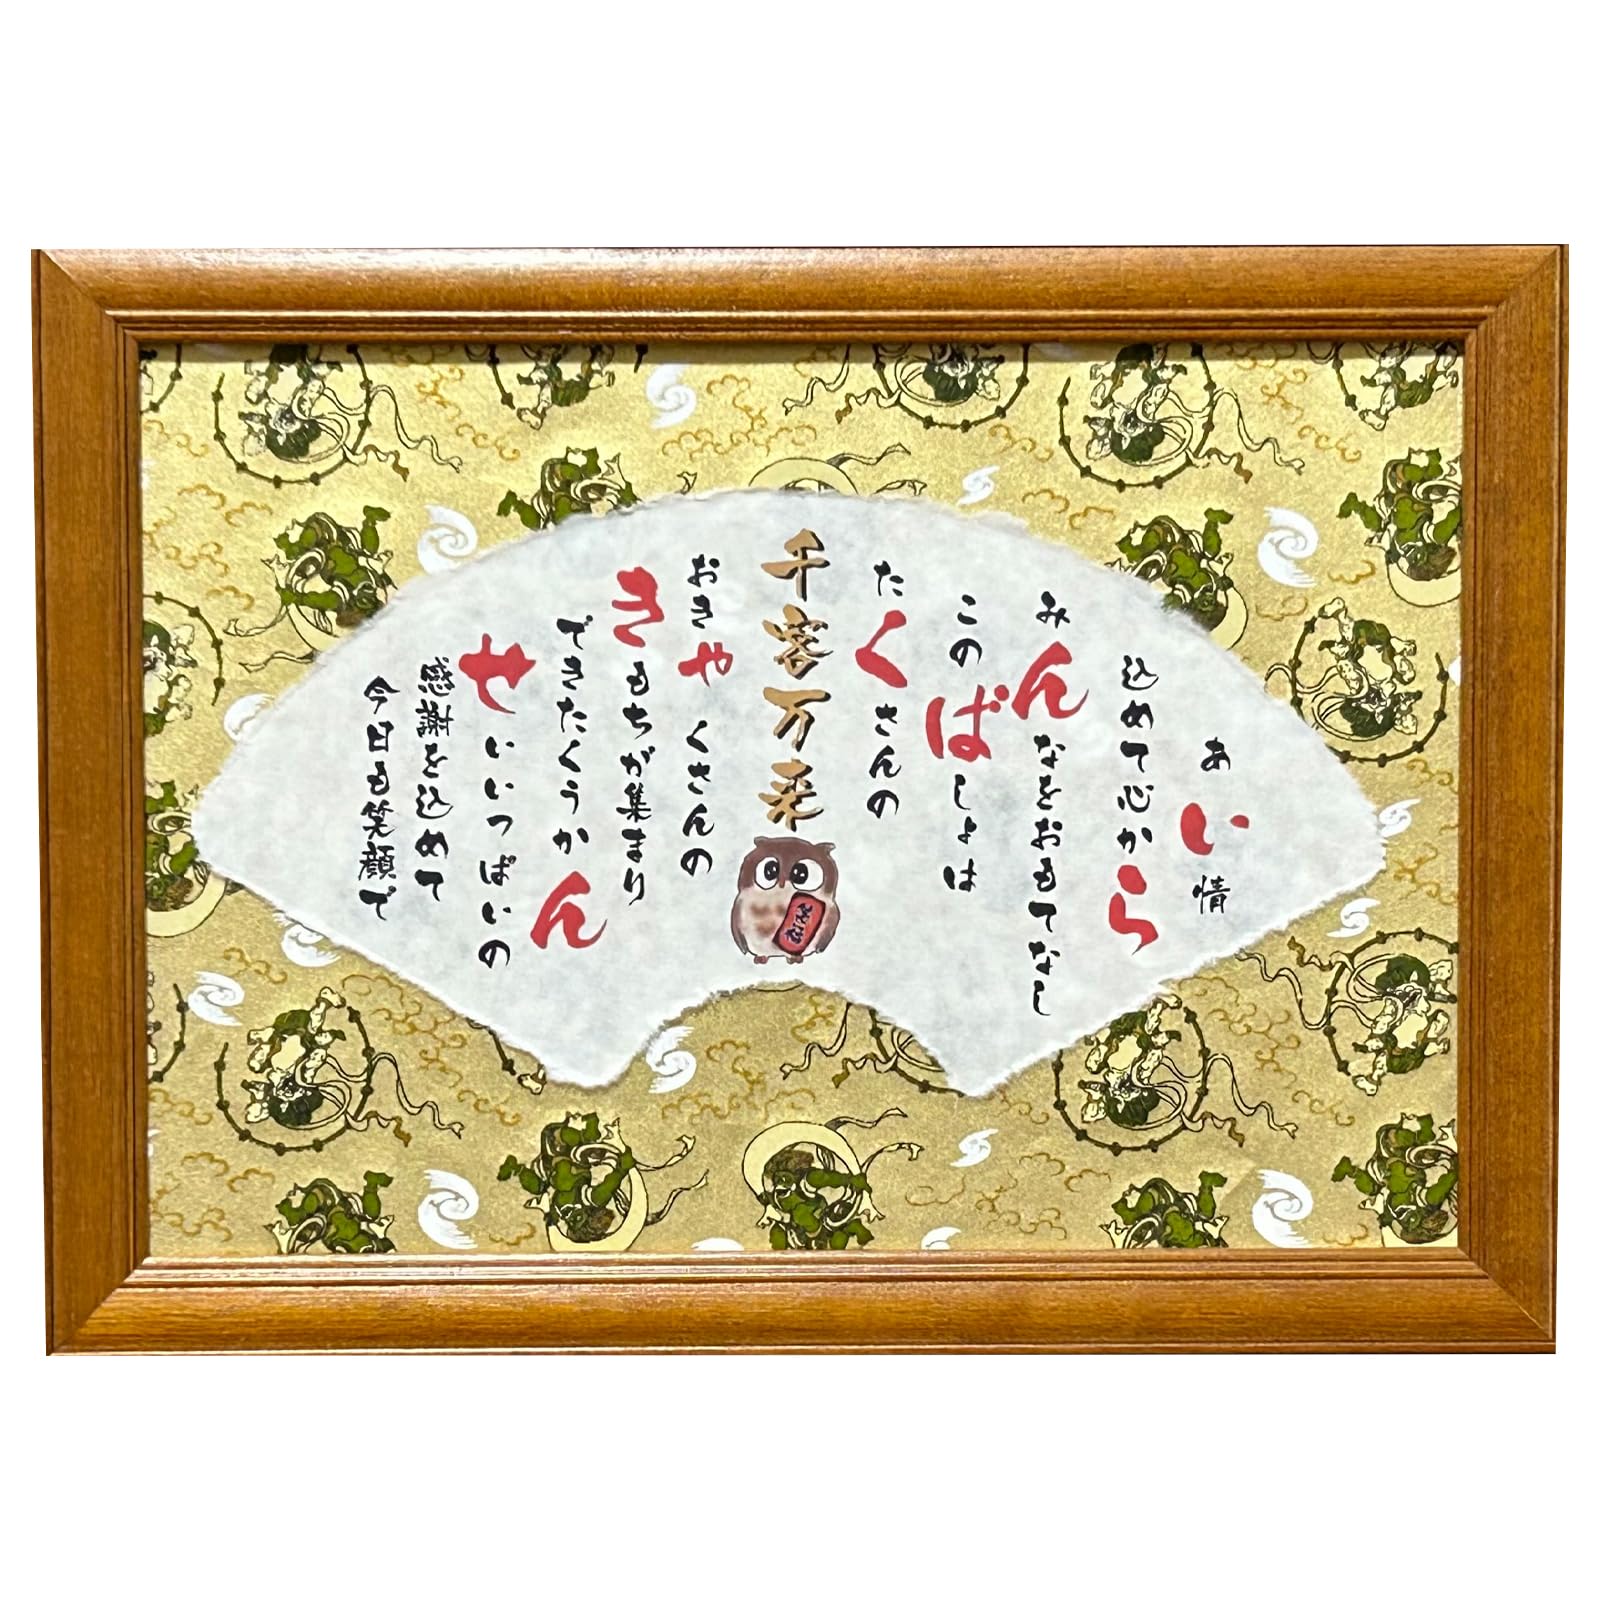 あい情
込めて心から
みんなをおもてなし
このばしょは
たくさんの
千客万来
おきやくさんの
きもちが集まり
できたくうかん
せいいっぱいの
感謝を込めて
今日も笑顔で